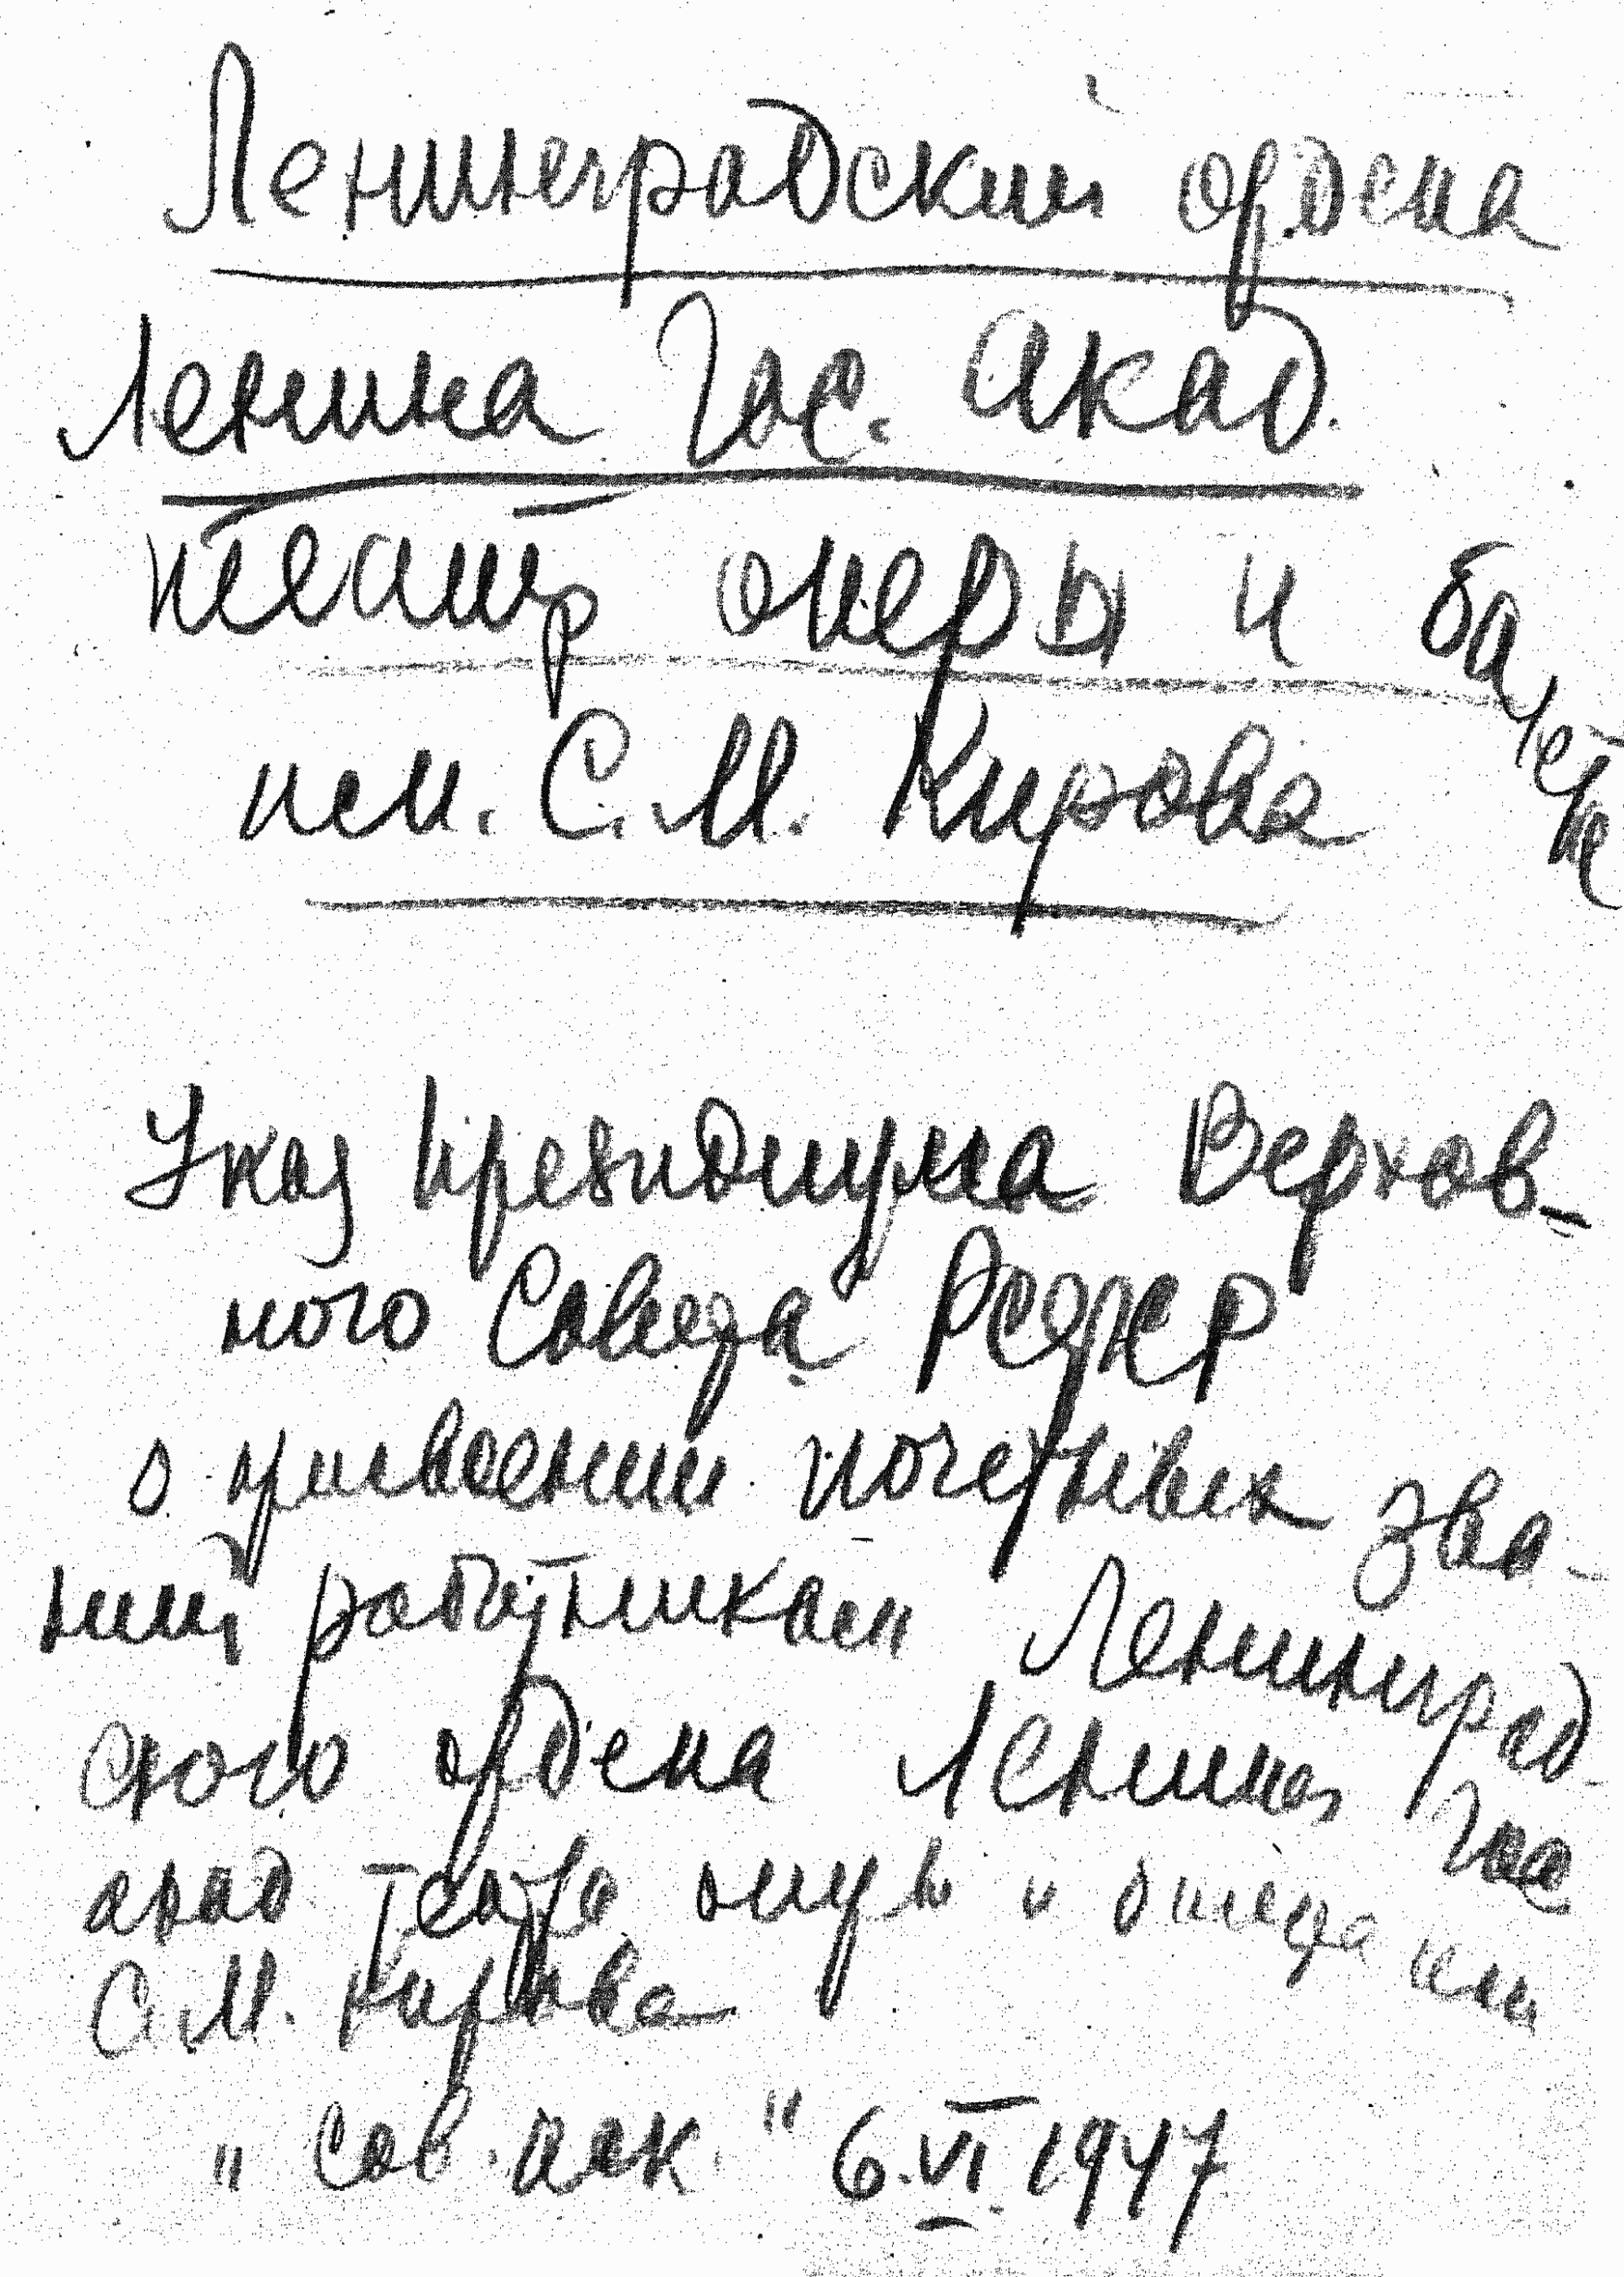 Ленинградский ордена
Ленина Гос. Акад.
театр оперы и балета
им. С. М. Кирова
Указ Президиума Верхов-
ного Совета РСФСР
о присвоении почетных зва-
ний работникам Ленинград-
ского ордена Ленина Гос
акад театра оперы и балета им
С. М. Кирова
"Сов. иск." 6.VI.1947